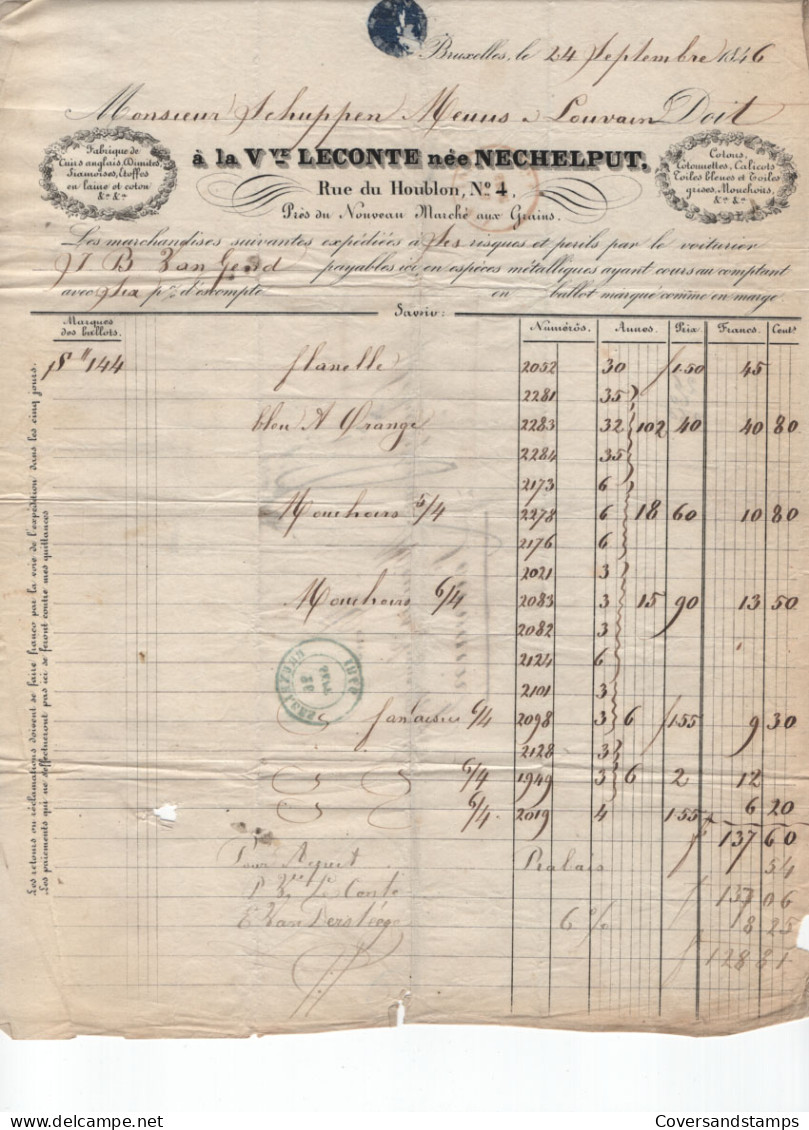 Bruxelles, le 24 Septembre 1846
Monsieur Schuppen Meuus à Louvain Doit
Fabrique de
Cuirs anglais, Dimites,
Siamoises, Etoffes
en laine et coton
&a. &a.
à la Vve LECONTE née NECHELPUT,
Rue du Houblon, No 4,
Près du Nouveau Marché aux Grains.
Cotons,
Cotonnettes, Calicots
Toiles bleues et Toiles
grises, Mouchoirs,
&a. &a.
Les marchandises suivantes expédiées à Ses risques et perils par le voiturier
J B Van Gend payables ici en espèces métalliques ayant cours au comptant
avec Six pr% d'escompte en ballot marqué comme en marge
Savoir:
Marques des ballots. Numéros. Aunes. Prix Francs. Cents
144 flanelle 2052 30 1.50 45
2281 35
bleu A Orange 2283 32 102 40 40 80
2284 35
2173 6
Mouchoirs 5/4 2278 6 18 60 10 80
2176 6
2021 3
Mouchoirs 6/4 2083 3 15 90 13 50
2082 3
2124 6
2101 3
6/4 2098 3 6 1.55 9 30
2128 3
6/4 1949 3 6 2 12
6/4 2019 4 1.55 6 20
137 60
Pour Acquit Rabais 54
P Vve Le Conte 137 06
E Van Derstiege 6 % 8 25
128 81
Les retours ou réclamations doivent se faire franco par la voie de l'expédition dans les cinq jours.
Les paiements qui ne s'effectueront pas ici se feront contre mes quittances
CoversandStamps
www.delcampe.net